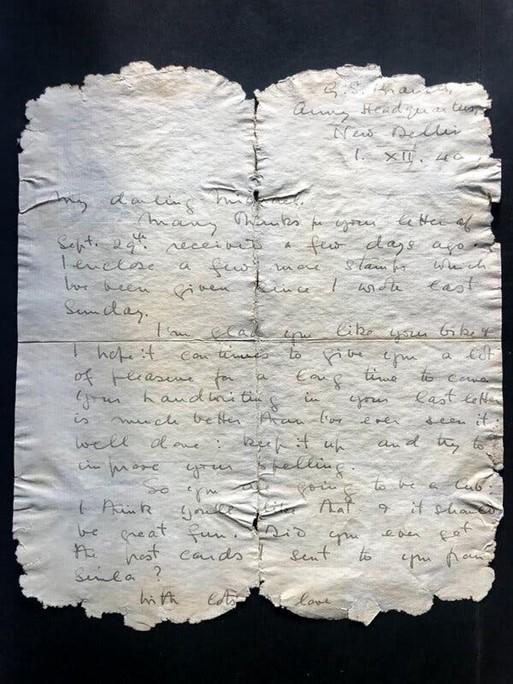 G.S. Branch,
Army Headquarters,
New Delhi
1. XII. 40.
My darling
Many thanks for your letter of
Sept. 29th. received a few days ago.
I enclose a few more stamps which
I've been given since I wrote last
Sunday.
I'm glad you like your bike &
I hope it continues to give you a lot
of pleasure for a long time to come.
Your handwriting in your last letter
is much better than I've ever seen it.
well done: keep it up and try to
improve your spelling.
So you are going to be a cub.
I think you'll like that & it should
be great fun. Did you ever get
the post cards I sent to you from
Simla?
With lots love